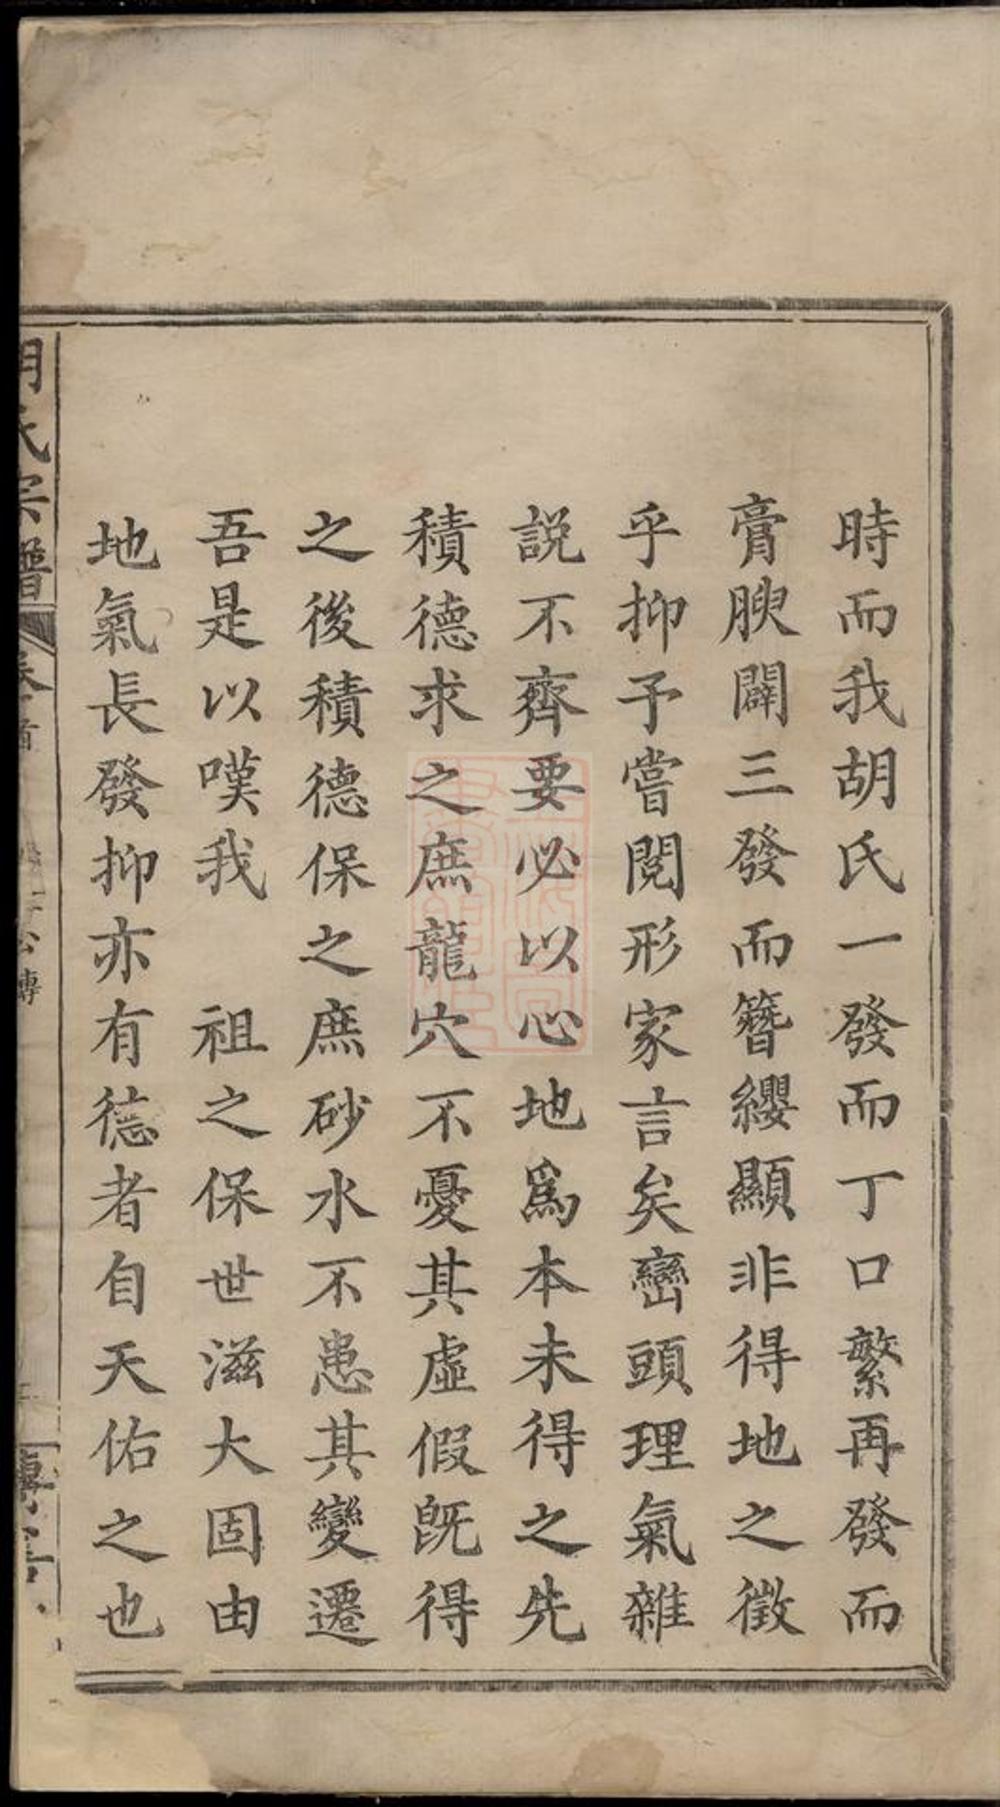 時而我胡氏一發而丁口繁再發而
膏腴闢三發而簪纓顯非得地之徵
乎抑予嘗閱形家言矣巒頭理氣雜
説不齊要必以心地爲本未得之先
積德求之庶龍穴不憂其虛假旣得
之後積德保之庶砂水不患其變遷
吾是以嘆我　祖之保世滋大固由
地氣長發抑亦有德者自天佑之也
胡氏宗譜
卷首
公傳